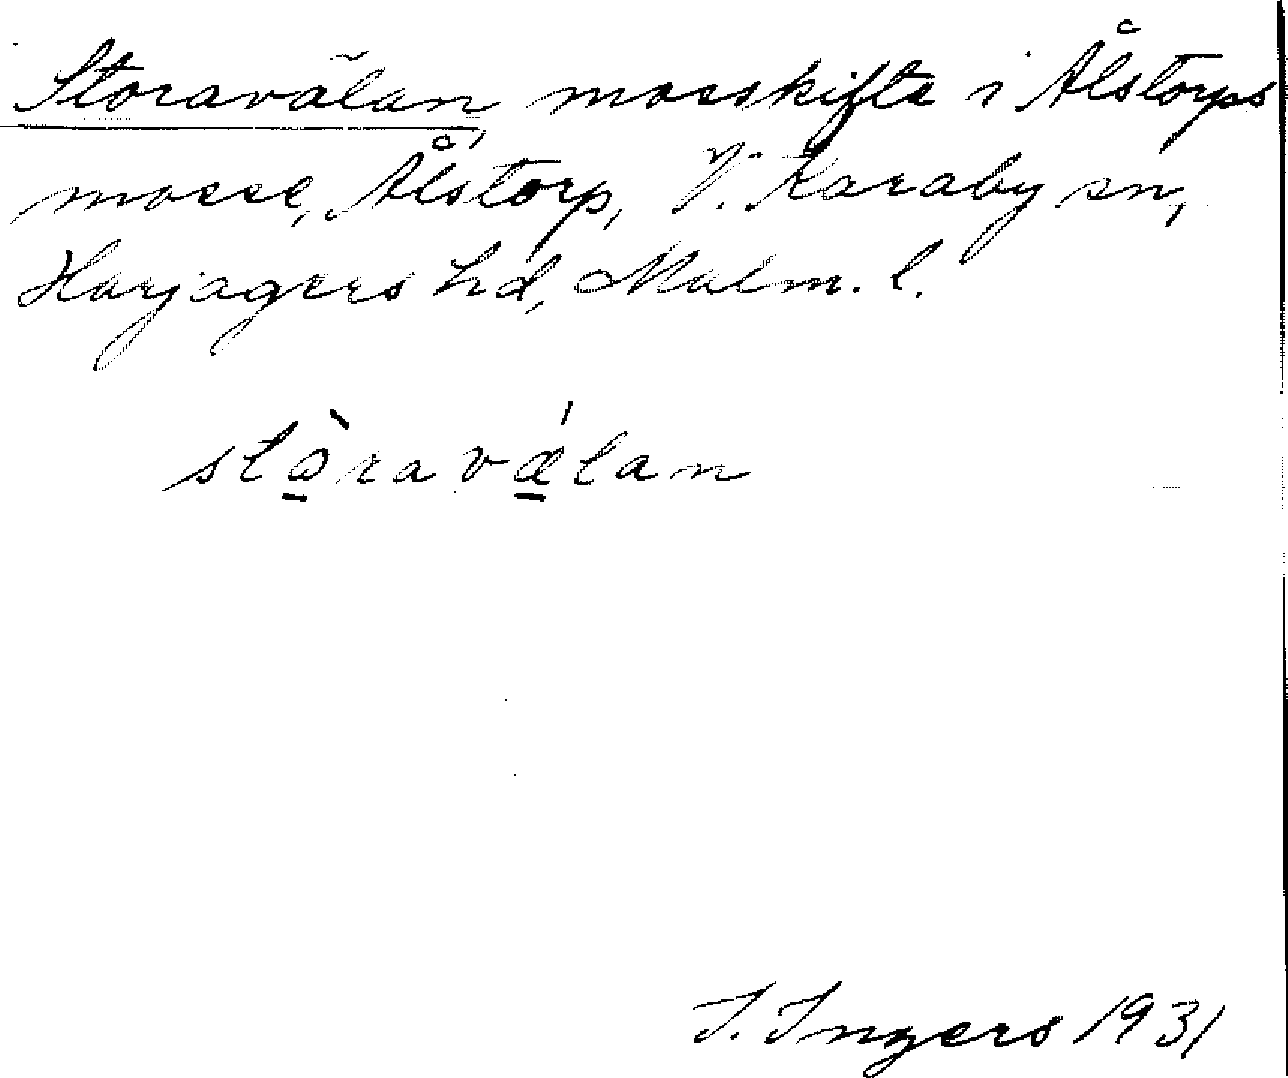 Storavälan, mosskifte i Ålstorps
mosse, Ålstorp, V. Karaby sn,
Harjagers hd, Malm. l.
stòravǽlan
I. Ingers 1931